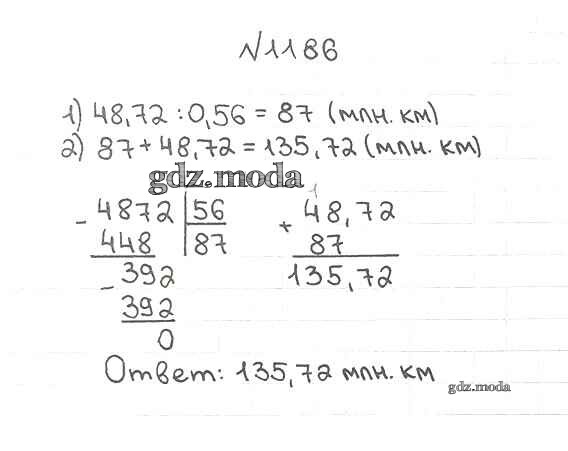 №1186
1) 48,72 : 0,56 = 87 (млн. км)
2) 87 + 48,72 = 135,72 (млн. км)
gdz.moda
- 4872 56
448 87
- 392
392
0
1
+ 48,72
87
135,72
Ответ: 135,72 млн. км
gdz.moda